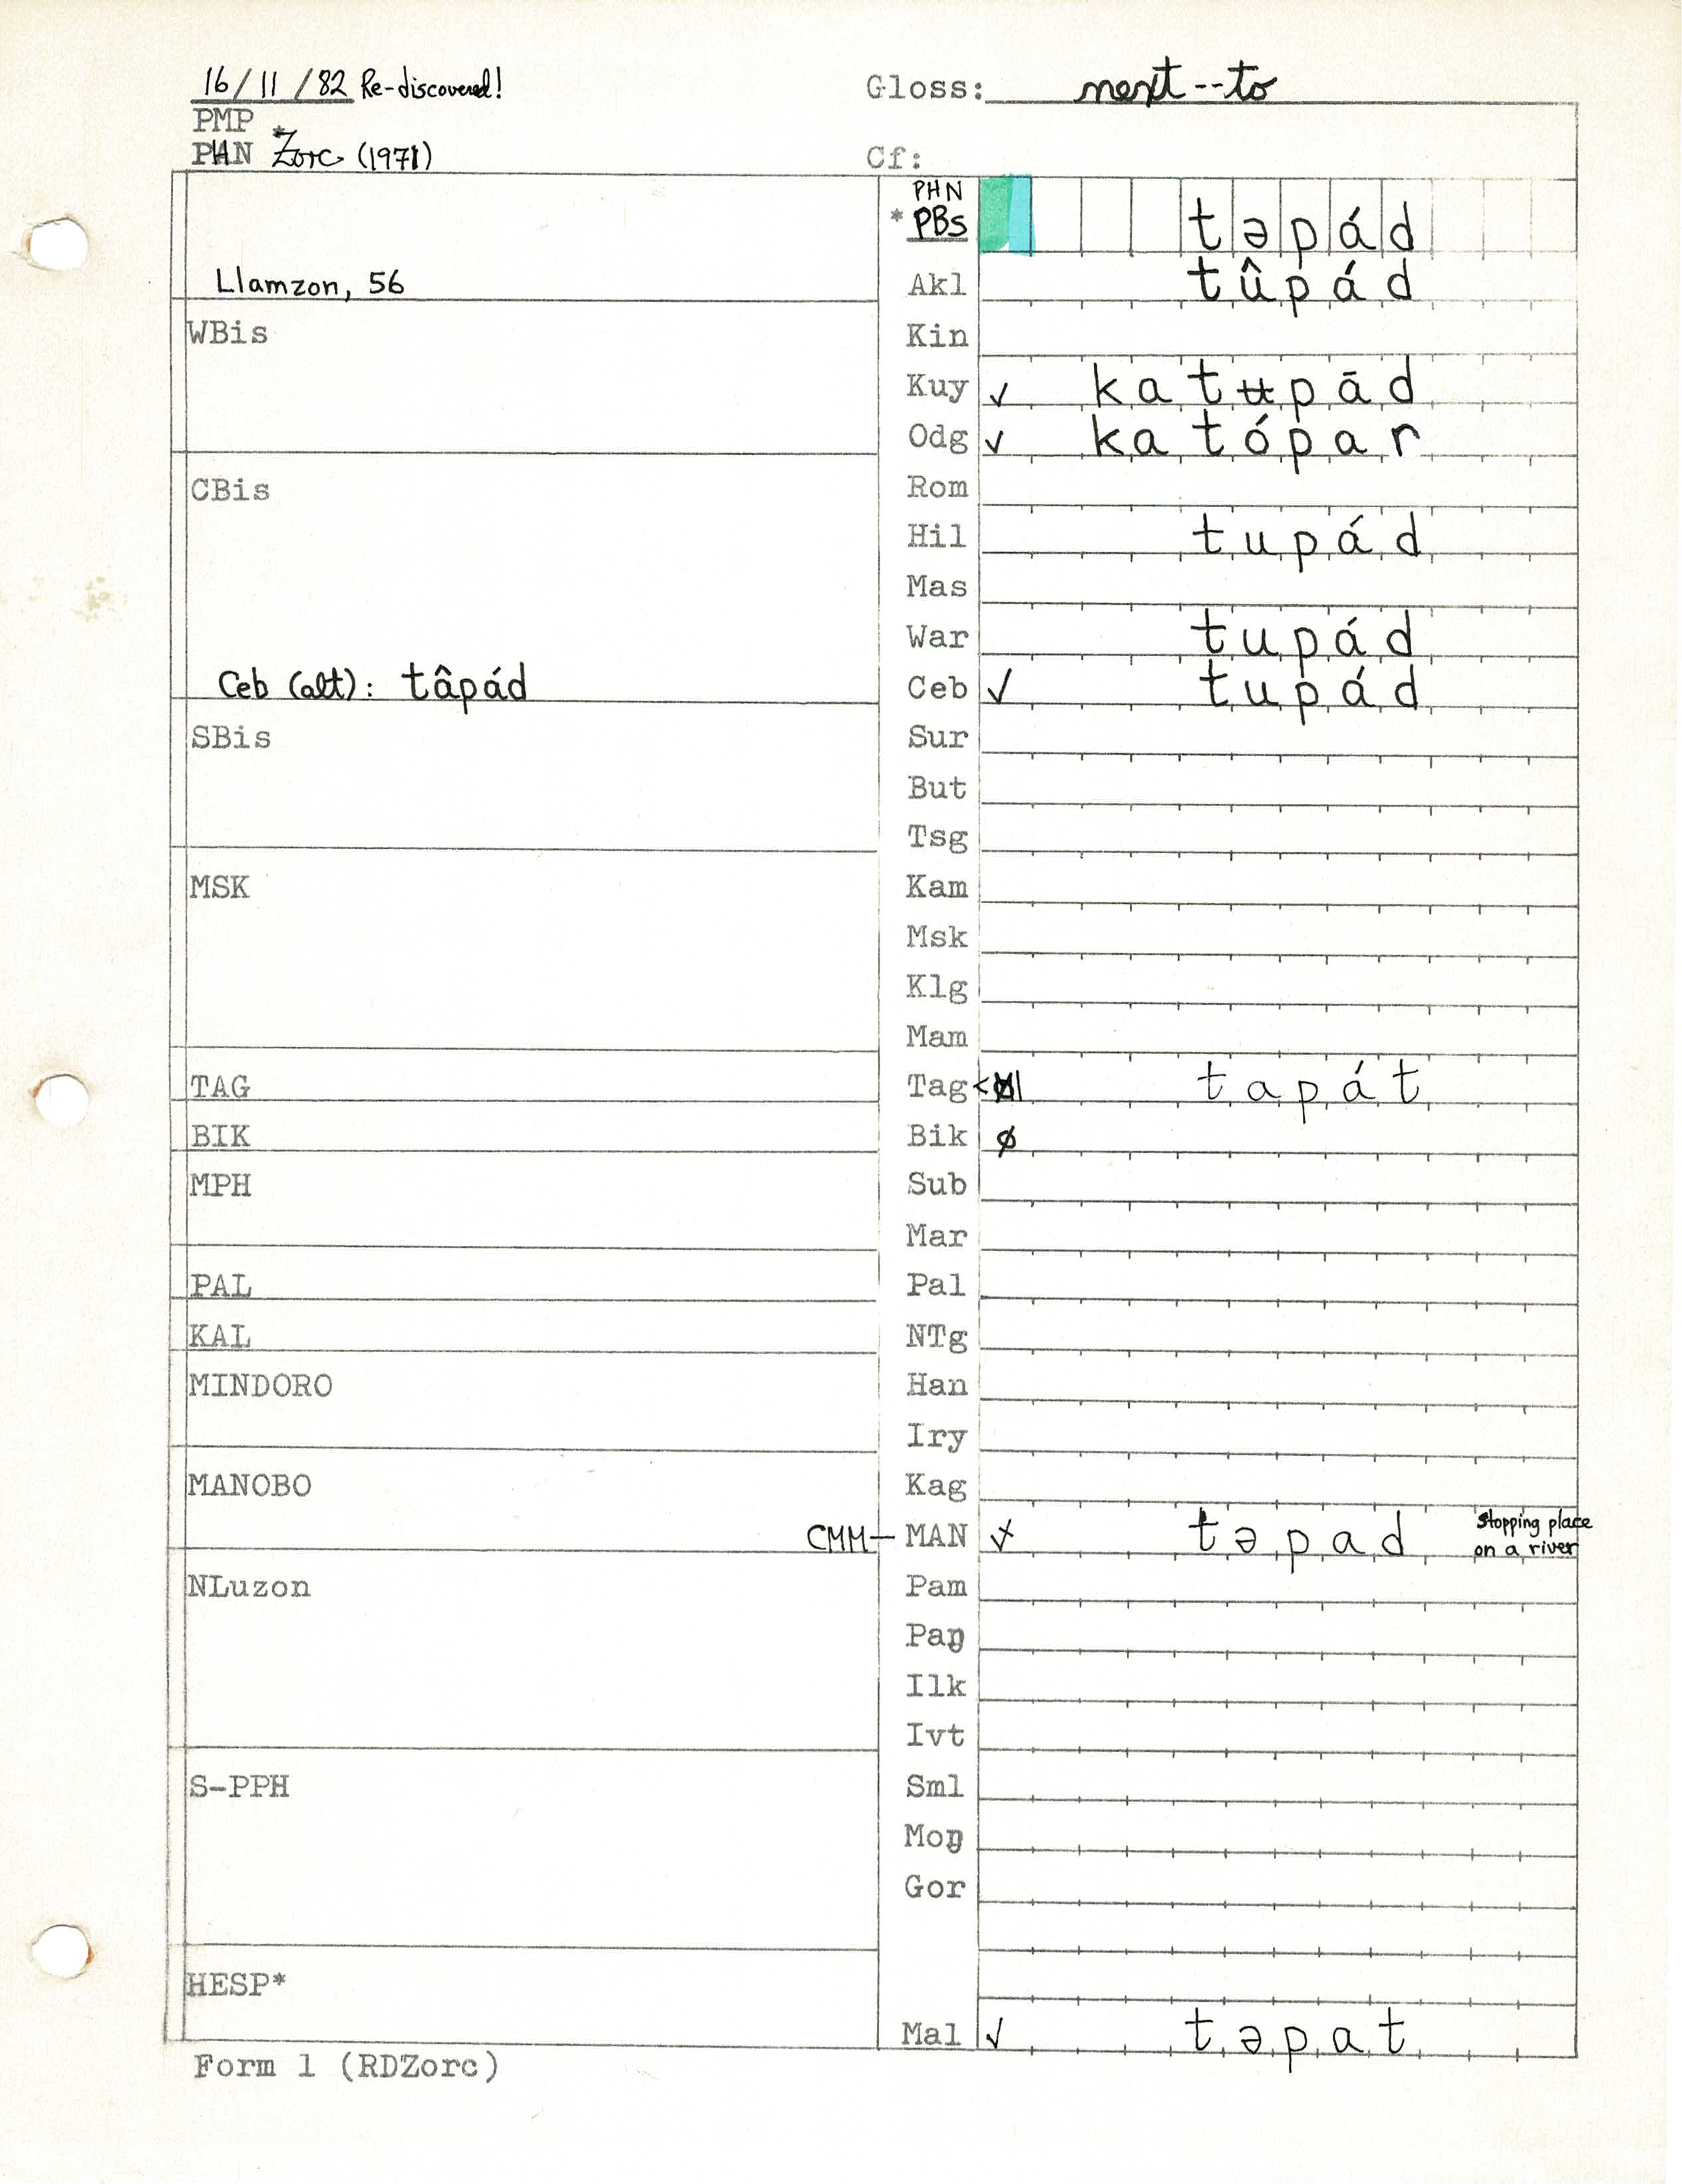 16/11/82 Re-discovered! Gloss: next--to
PMP
PHN *Zorc (1971) Cf:
PHN
*PBs təpád
Llamzon, 56 Akl tûpád
WBis Kin
Kuy ✓ katʉpād
Odg ✓ katópar
CBis Rom
Hil tupád
Mas
War tupád
Ceb (alt): tâpád Ceb ✓ tupád
SBis Sur
But
Tsg
MSK Kam
Msk
Klg
Mam
TAG Tag < Ml tapát
BIK Bik ø
MPH Sub
Mar
PAL Pal
KAL NTg
MINDORO Han
Iry
MANOBO Kag
CMM— MAN təpad Stopping place
on a river
NLuzon Pam
Paŋ
Ilk
Ivt
S-PPH Sml
Moŋ
Gor
HESP*
Mal ✓ təpat
Form 1 (RDZorc)